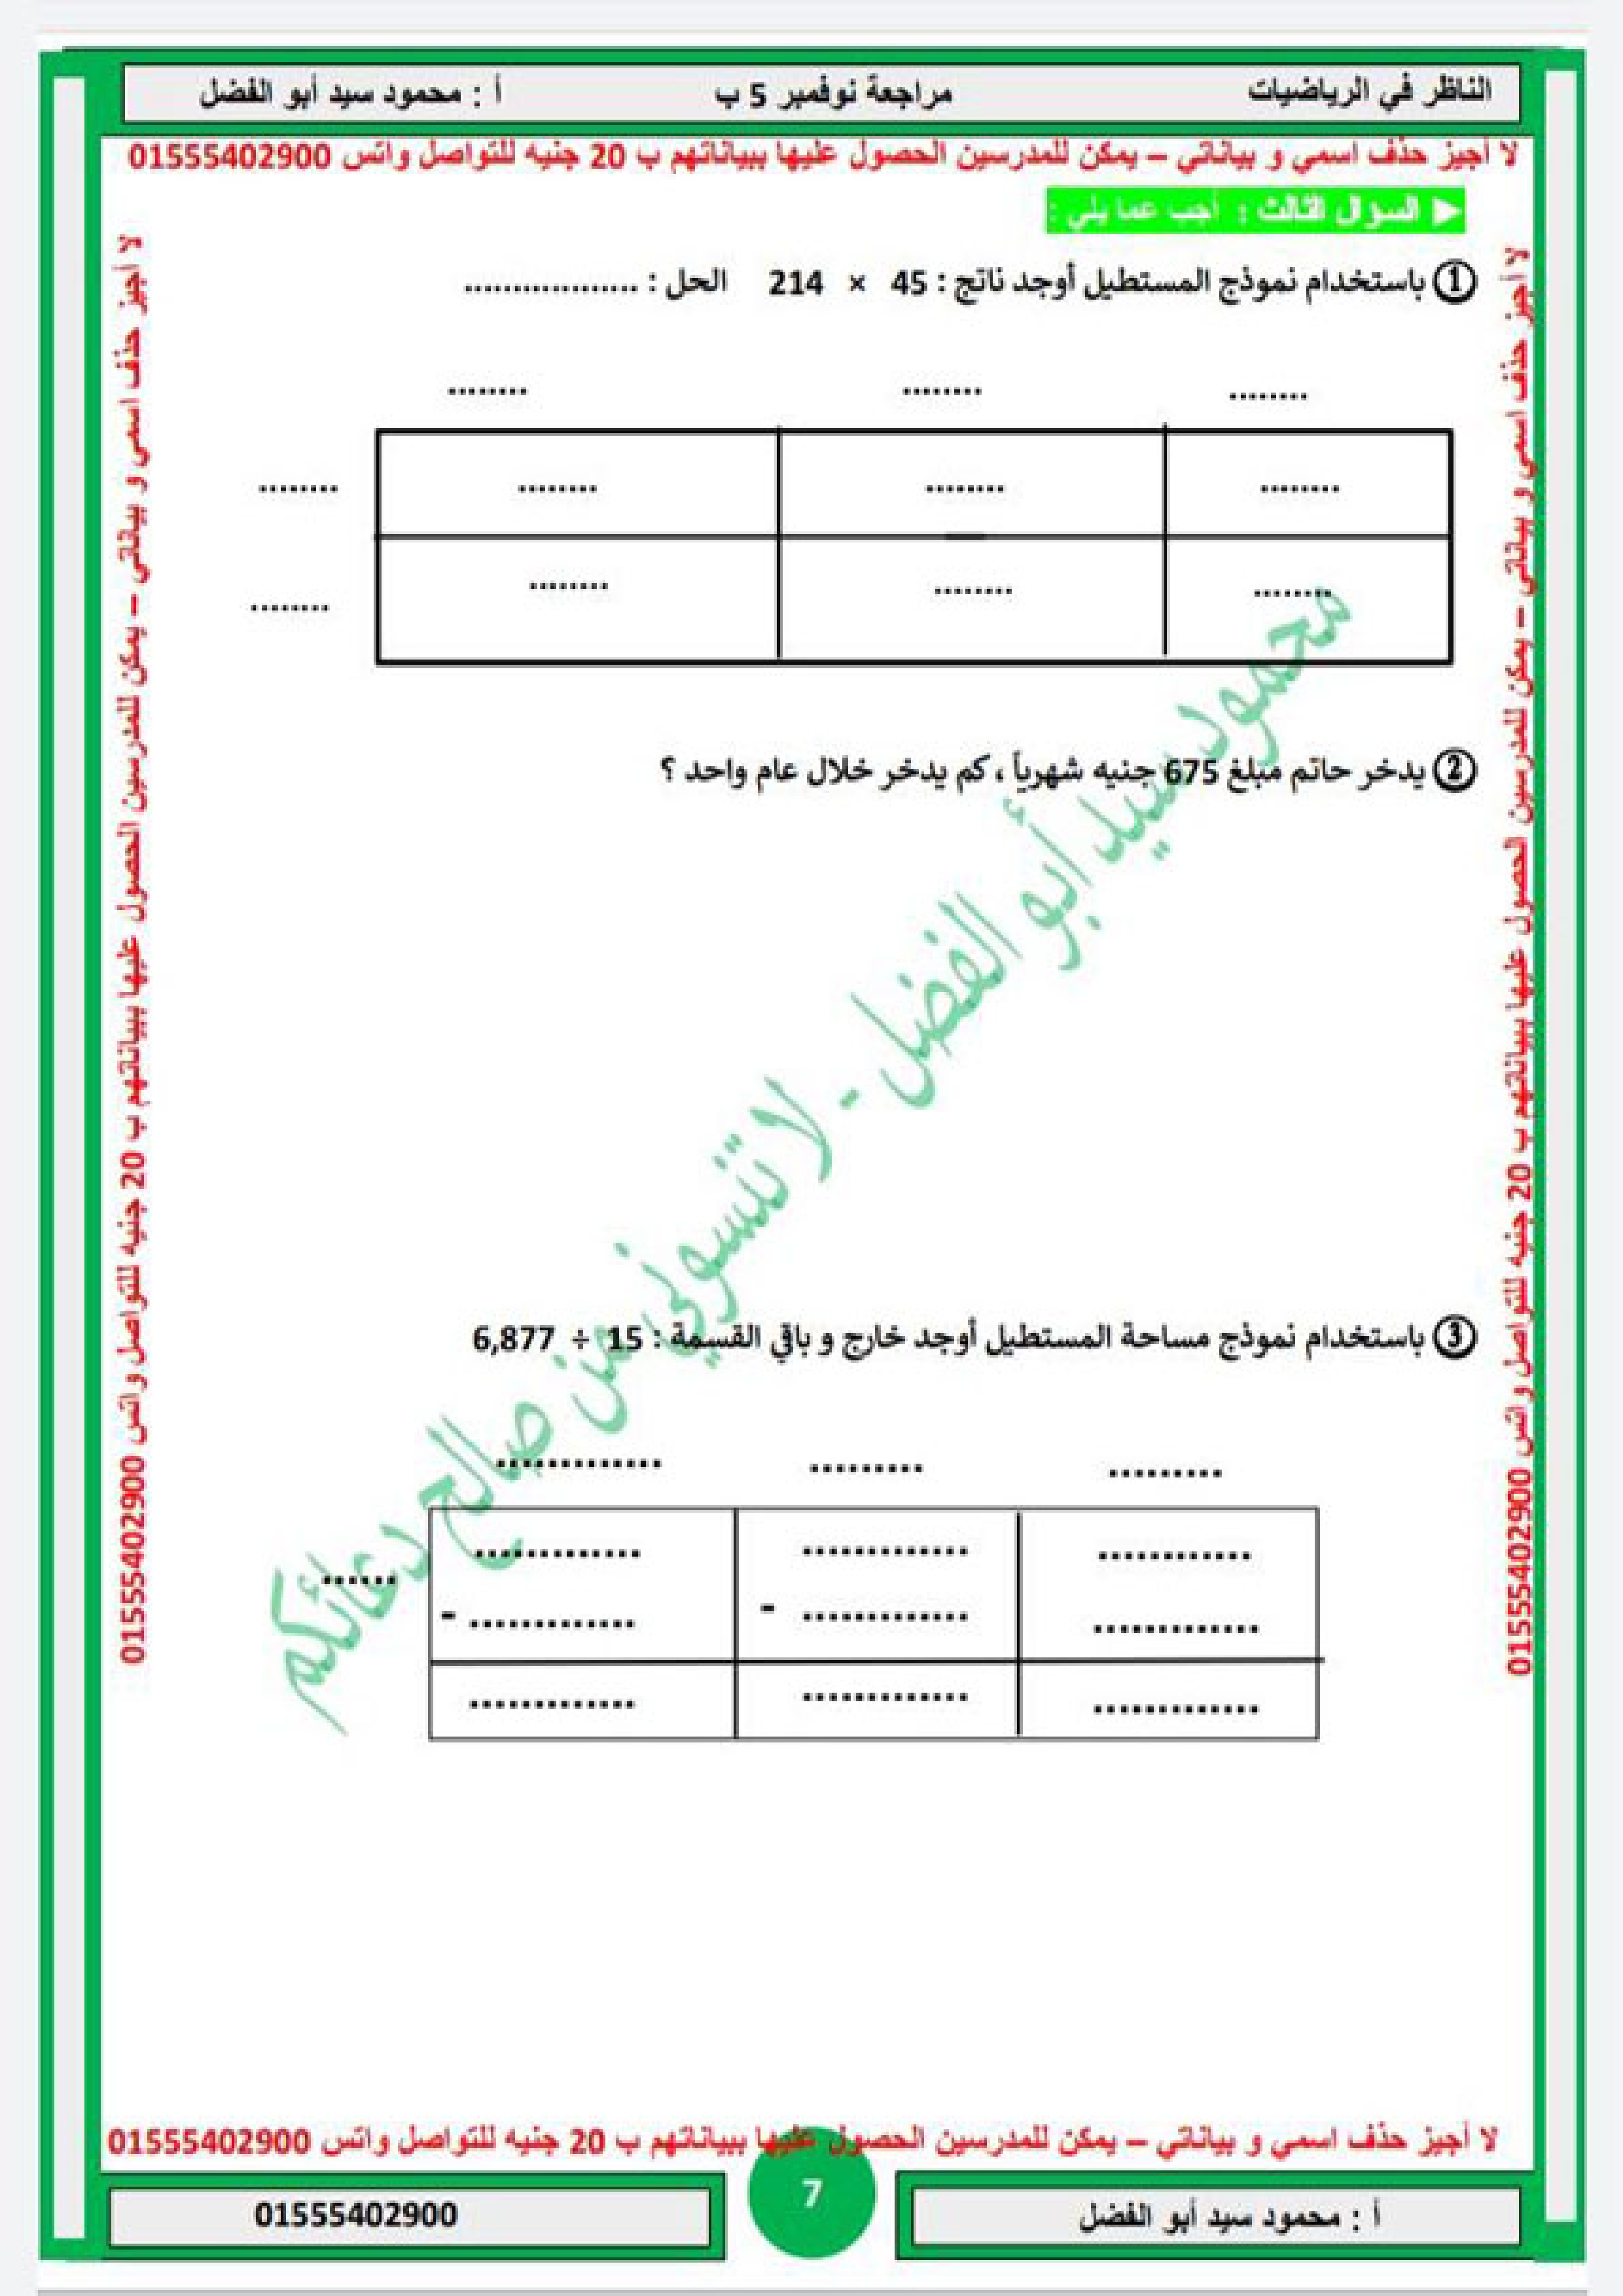 الناظر في الرياضيات مراجعة نوفمبر 5 ب أ : محمود سيد أبو الفضل
لا أجيز حذف اسمي و بياناتي – يمكن للمدرسين الحصول عليها ببياناتهم ب 20 جنيه للتواصل واتس 01555402900
◄ السؤال الثالث : أجب عما يلي :
① باستخدام نموذج المستطيل أوجد ناتج : 45 × 214 الحل : ..................
........ ........ ........
........ ........ ........ ........
........ ........ ........ ........
② يدخر حاتم مبلغ 675 جنيه شهرياً ، كم يدخر خلال عام واحد ؟
③ باستخدام نموذج مساحة المستطيل أوجد خارج و باقي القسمة : 15 ÷ 6,877
............. ......... .........
............. ............. ............
......
- ............. - ............. .............
............. ............. .............
محمود سيد أبو الفضل - لا تنسوني من صالح دعائكم
لا أجيز حذف اسمي و بياناتي – يمكن للمدرسين الحصول عليها ببياناتهم ب 20 جنيه للتواصل واتس 01555402900
لا أجيز حذف اسمي و بياناتي – يمكن للمدرسين الحصول عليها ببياناتهم ب 20 جنيه للتواصل واتس 01555402900
لا أجيز حذف اسمي و بياناتي – يمكن للمدرسين الحصول عليها ببياناتهم ب 20 جنيه للتواصل واتس 01555402900
أ : محمود سيد أبو الفضل 7 01555402900